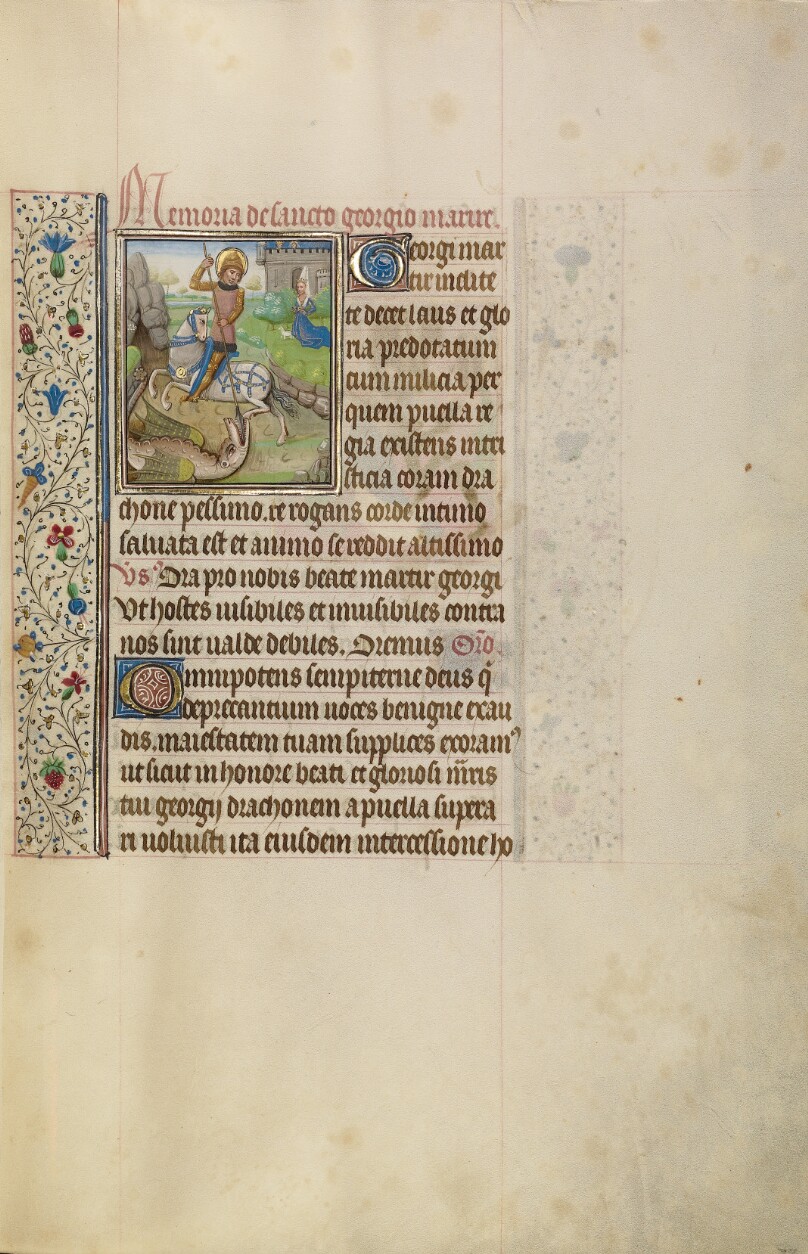 Memoria de sancto georgio martire.
Georgi mar
tir inclite
te decet laus et glo
ria predotatum
cum milicia per
quem puella re
gia existens intri
sticia coram dra
chone pessimo. te rogans corde intimo
saluata est et animo se reddit altissimo
Vs Ora pro nobis beate martir georgi
Vt hostes uisibiles et inuisibiles contra
nos sint ualde debiles. Oremus Oro.
Omnipotens sempiterne deus q̄
deprecantium uoces benigne exau
dis. maiestatem tuam supplices exoramꝰ
ut sicut in honore beati et gloriosi mr̄is
tui georgij drachonem a puella supera
ri uoluisti ita eiusdem intercessione ho